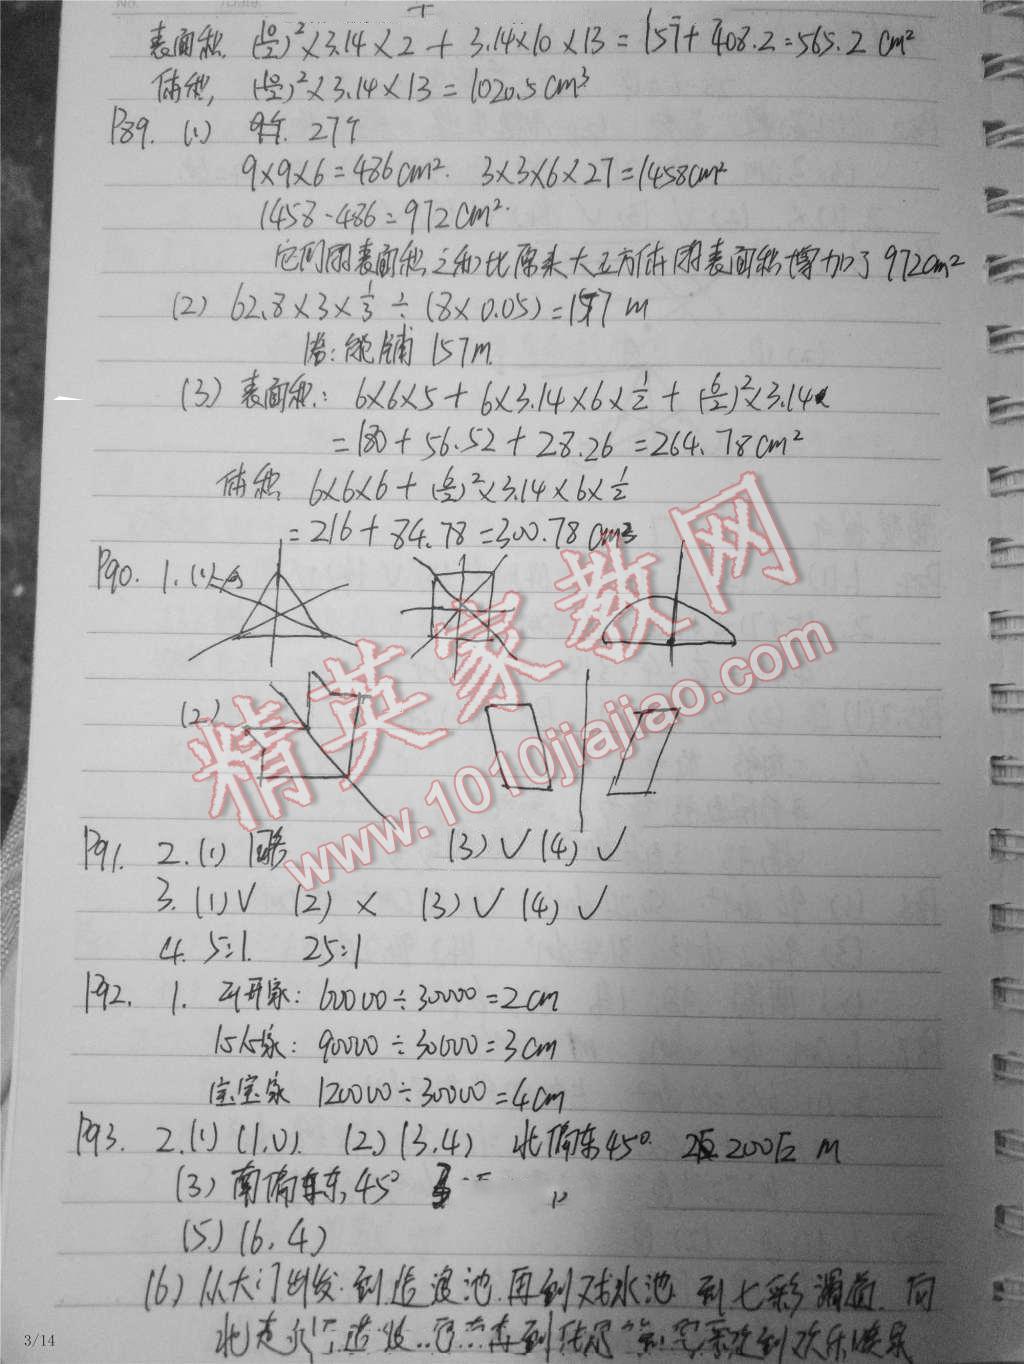 表面积 (10/2)²×3.14×2+3.14×10×13=157+408.2=565.2 cm²
体积, (10/2)²×3.14×13=1020.5cm³
P89. (1) 27个
9×9×6=486cm². 3×3×6×27=1458cm²
1458-486=972cm².
它们的表面积之和比原来大正方体的表面积增加了972cm²
(2) 62.8×3×1/3÷(8×0.05)=157 m
答:能铺 157m
(3) 表面积: 6×6×5+6×3.14×6×1/2+(6/2)²×3.14
=180+56.52+28.26=264.78cm²
体积 6×6×6+(6/2)²×3.14×6×1/2
=216+84.78=300.78cm³
P90. 1.(1)
(2)
精英家教网
www.1010jiajiao.com
P91. 2.(1) 略 (3)√ (4)√
3.(1)√ (2)× (3)√ (4)√
4. 5:1. 25:1
P92. 1. 家: 60000÷30000=2cm
家: 90000÷30000=3cm
宝宝家 120000÷30000=4cm
P93. 2.(1) (1,0). (2)(3,4) 北偏东45°. 200 m
(3) 南偏东45°
(5)(6,4)
(6) 从大门出发到造浪池再到戏水池到七彩 向
北走
3/14